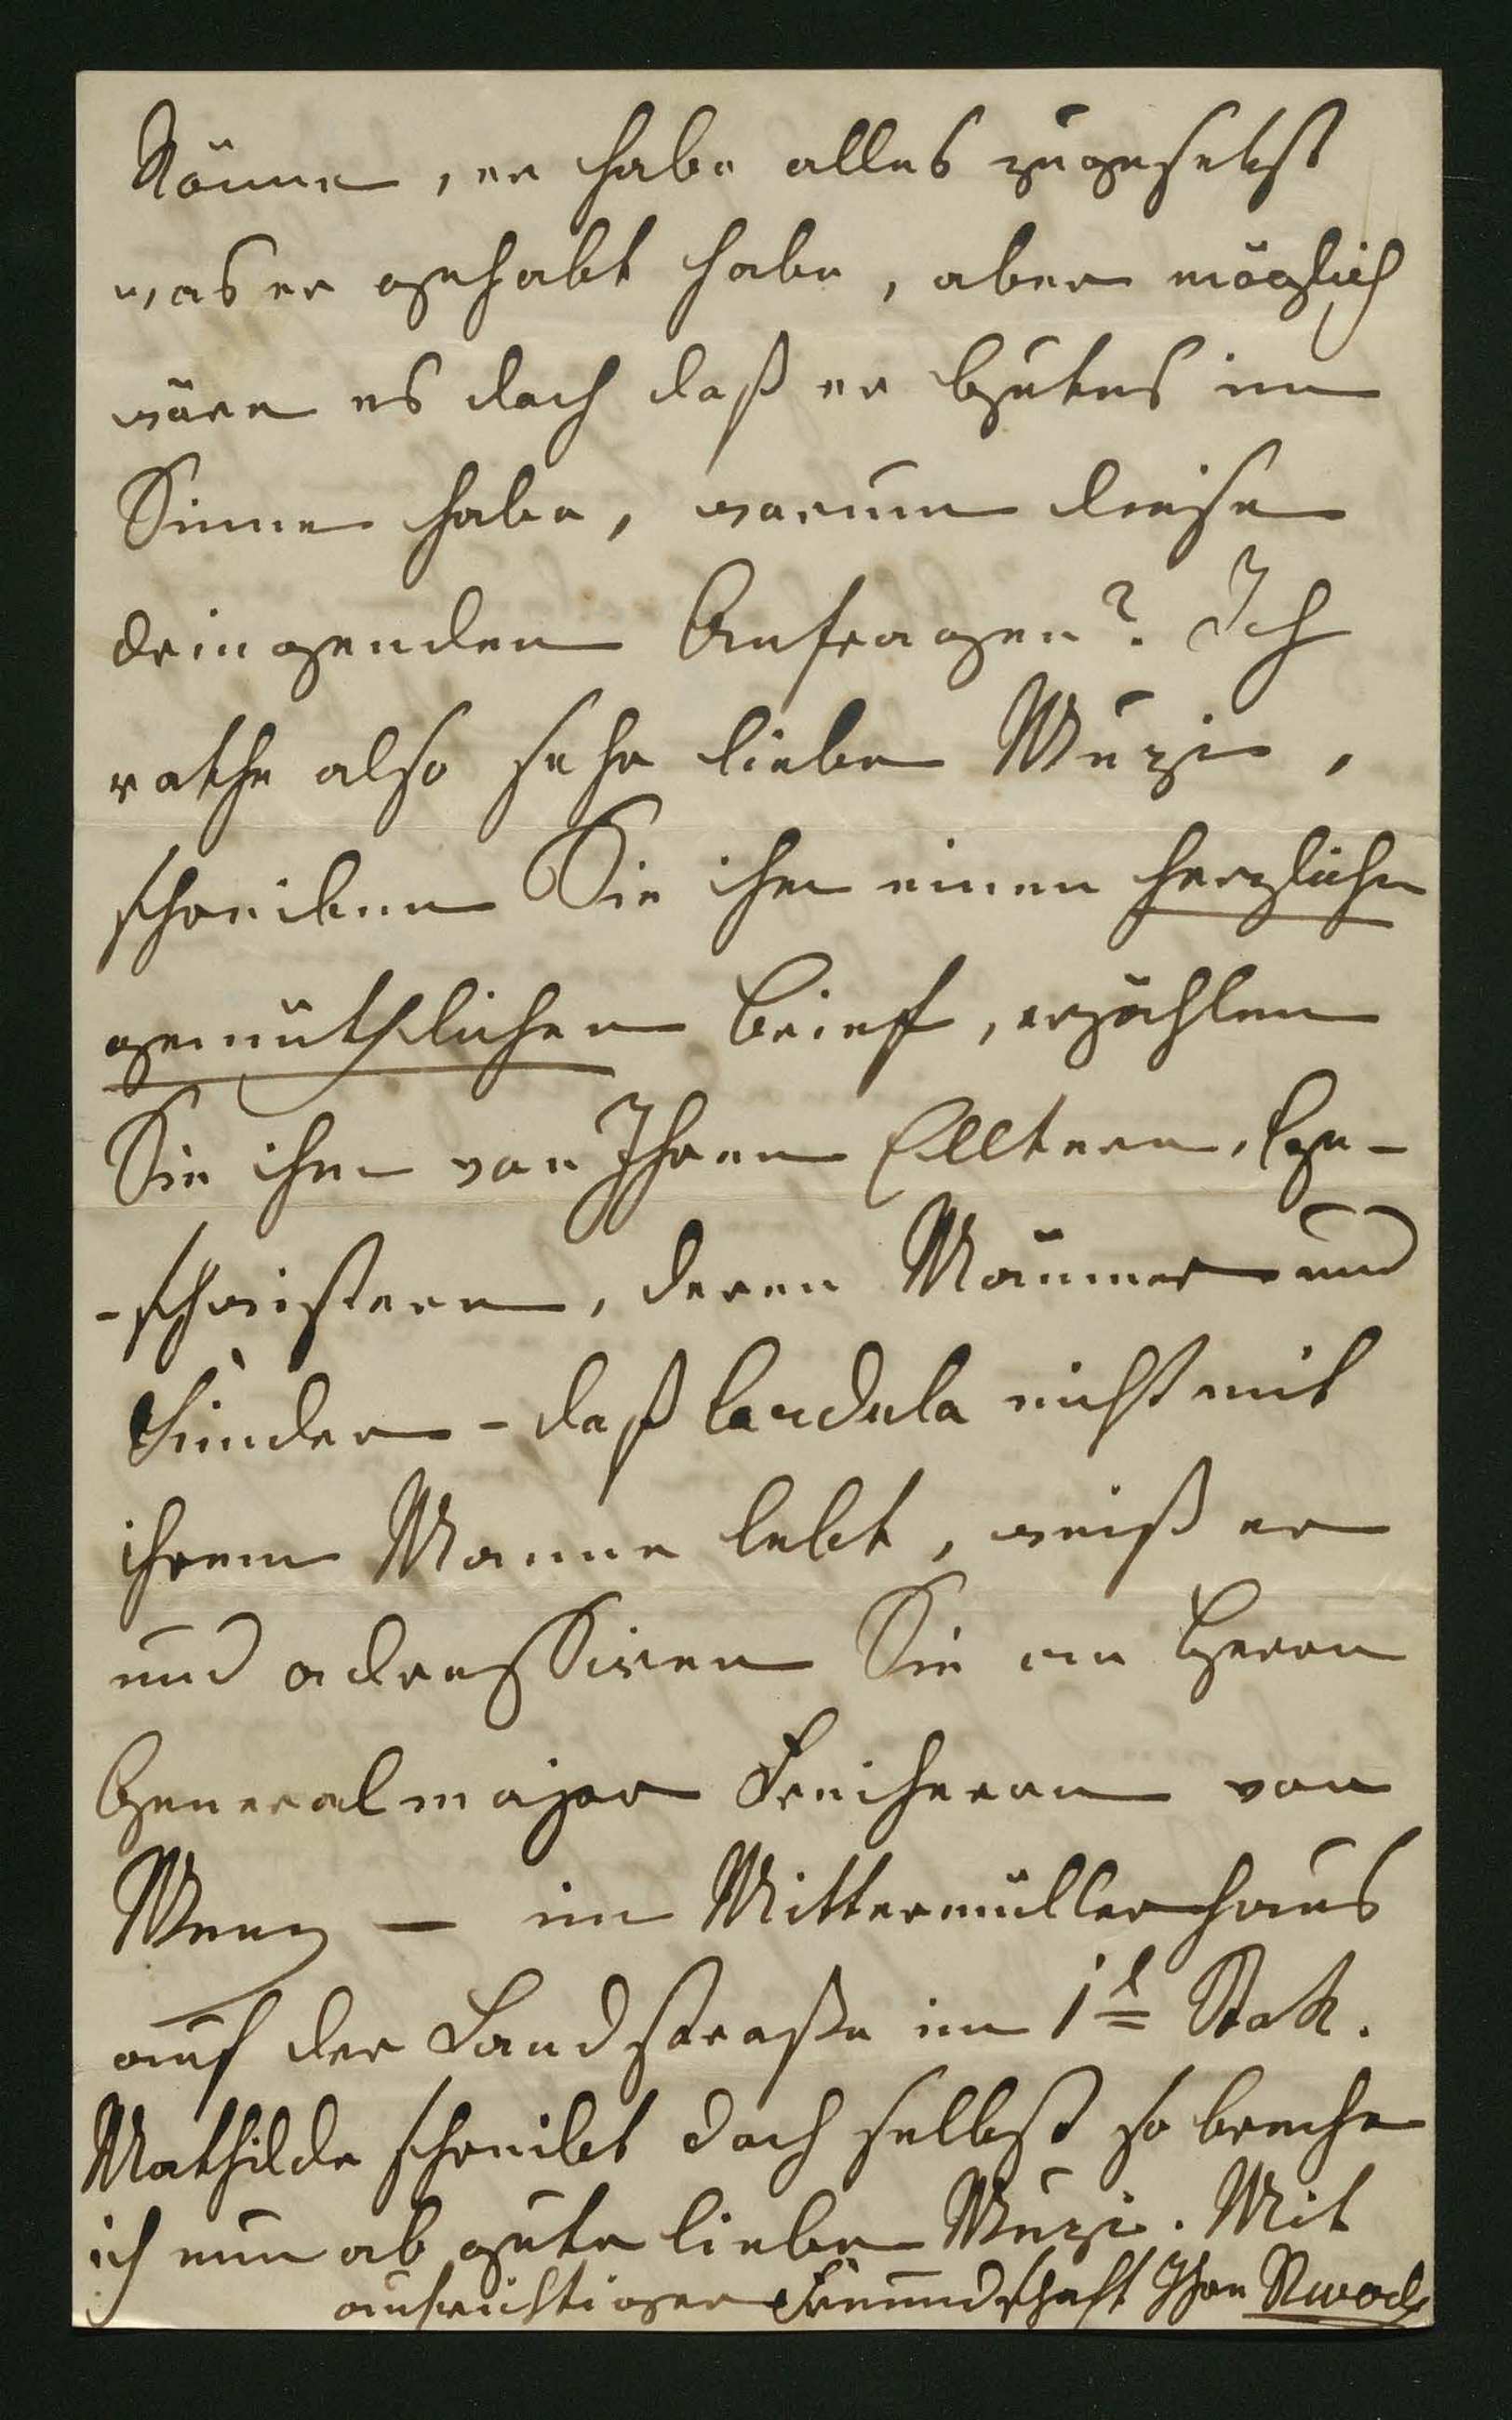 könne, er habe alles zugesetzt
was er gehabt habe, aber möglich
wäre es doch daß er Gutes im
Sinne habe, warum diese
dringenden Anfragen? Ich
rathe also sehr liebe Muzi,
schreiben Sie ihm einen herzlichen
gemüthlichen Brief, erzählen
Sie ihm von Ihren Elltern, Ge-
-schwistern, deren Männer und
Kinder - daß Cordula nicht mit
ihrem Manne lebt, weiß er
und adressiren Sie an Herrn
Generalmajor Freiherrn von
im Mittermüllerhaus
auf der Landstraße im 1t Stok.
Mathilde schreibt doch selbst so breche
ich nun ab gute liebe Muzi. Mit
aufrichtiger Freundschaft Ihre